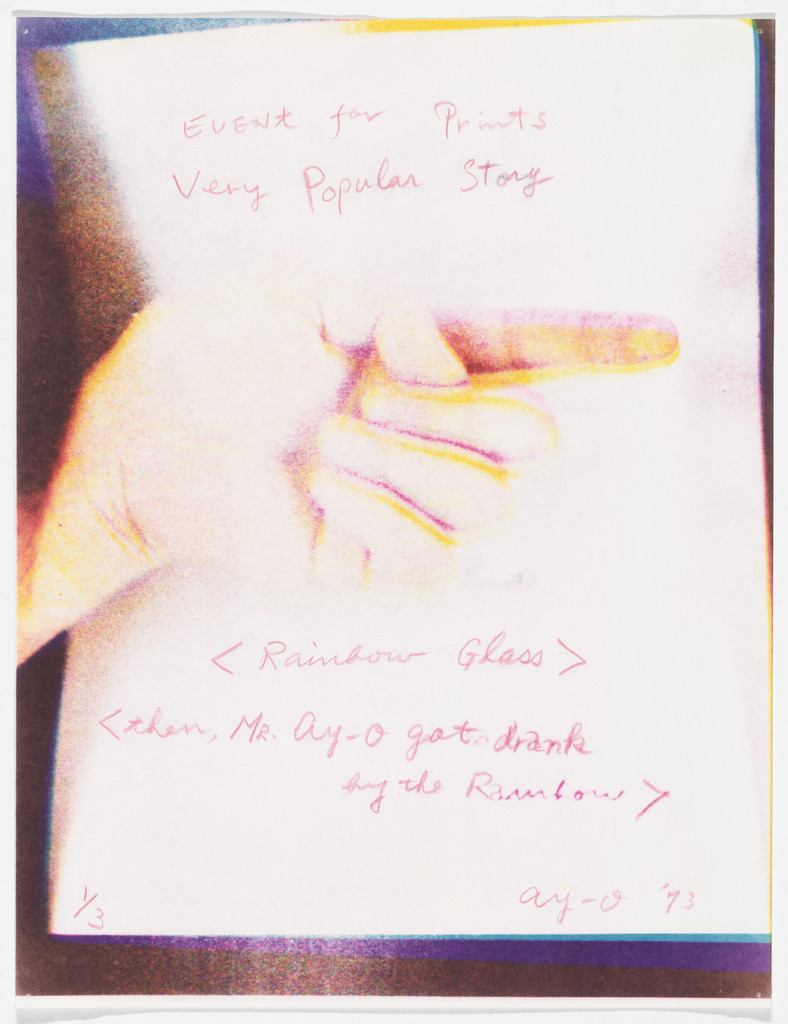 EVENt for Prints
Very Popular Story
< Rainbow Glass >
< then, Mr. Ay-O got drank
by the Rainbow >
1/3
ay-o '73